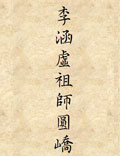 李涵虛祖師圓嶠